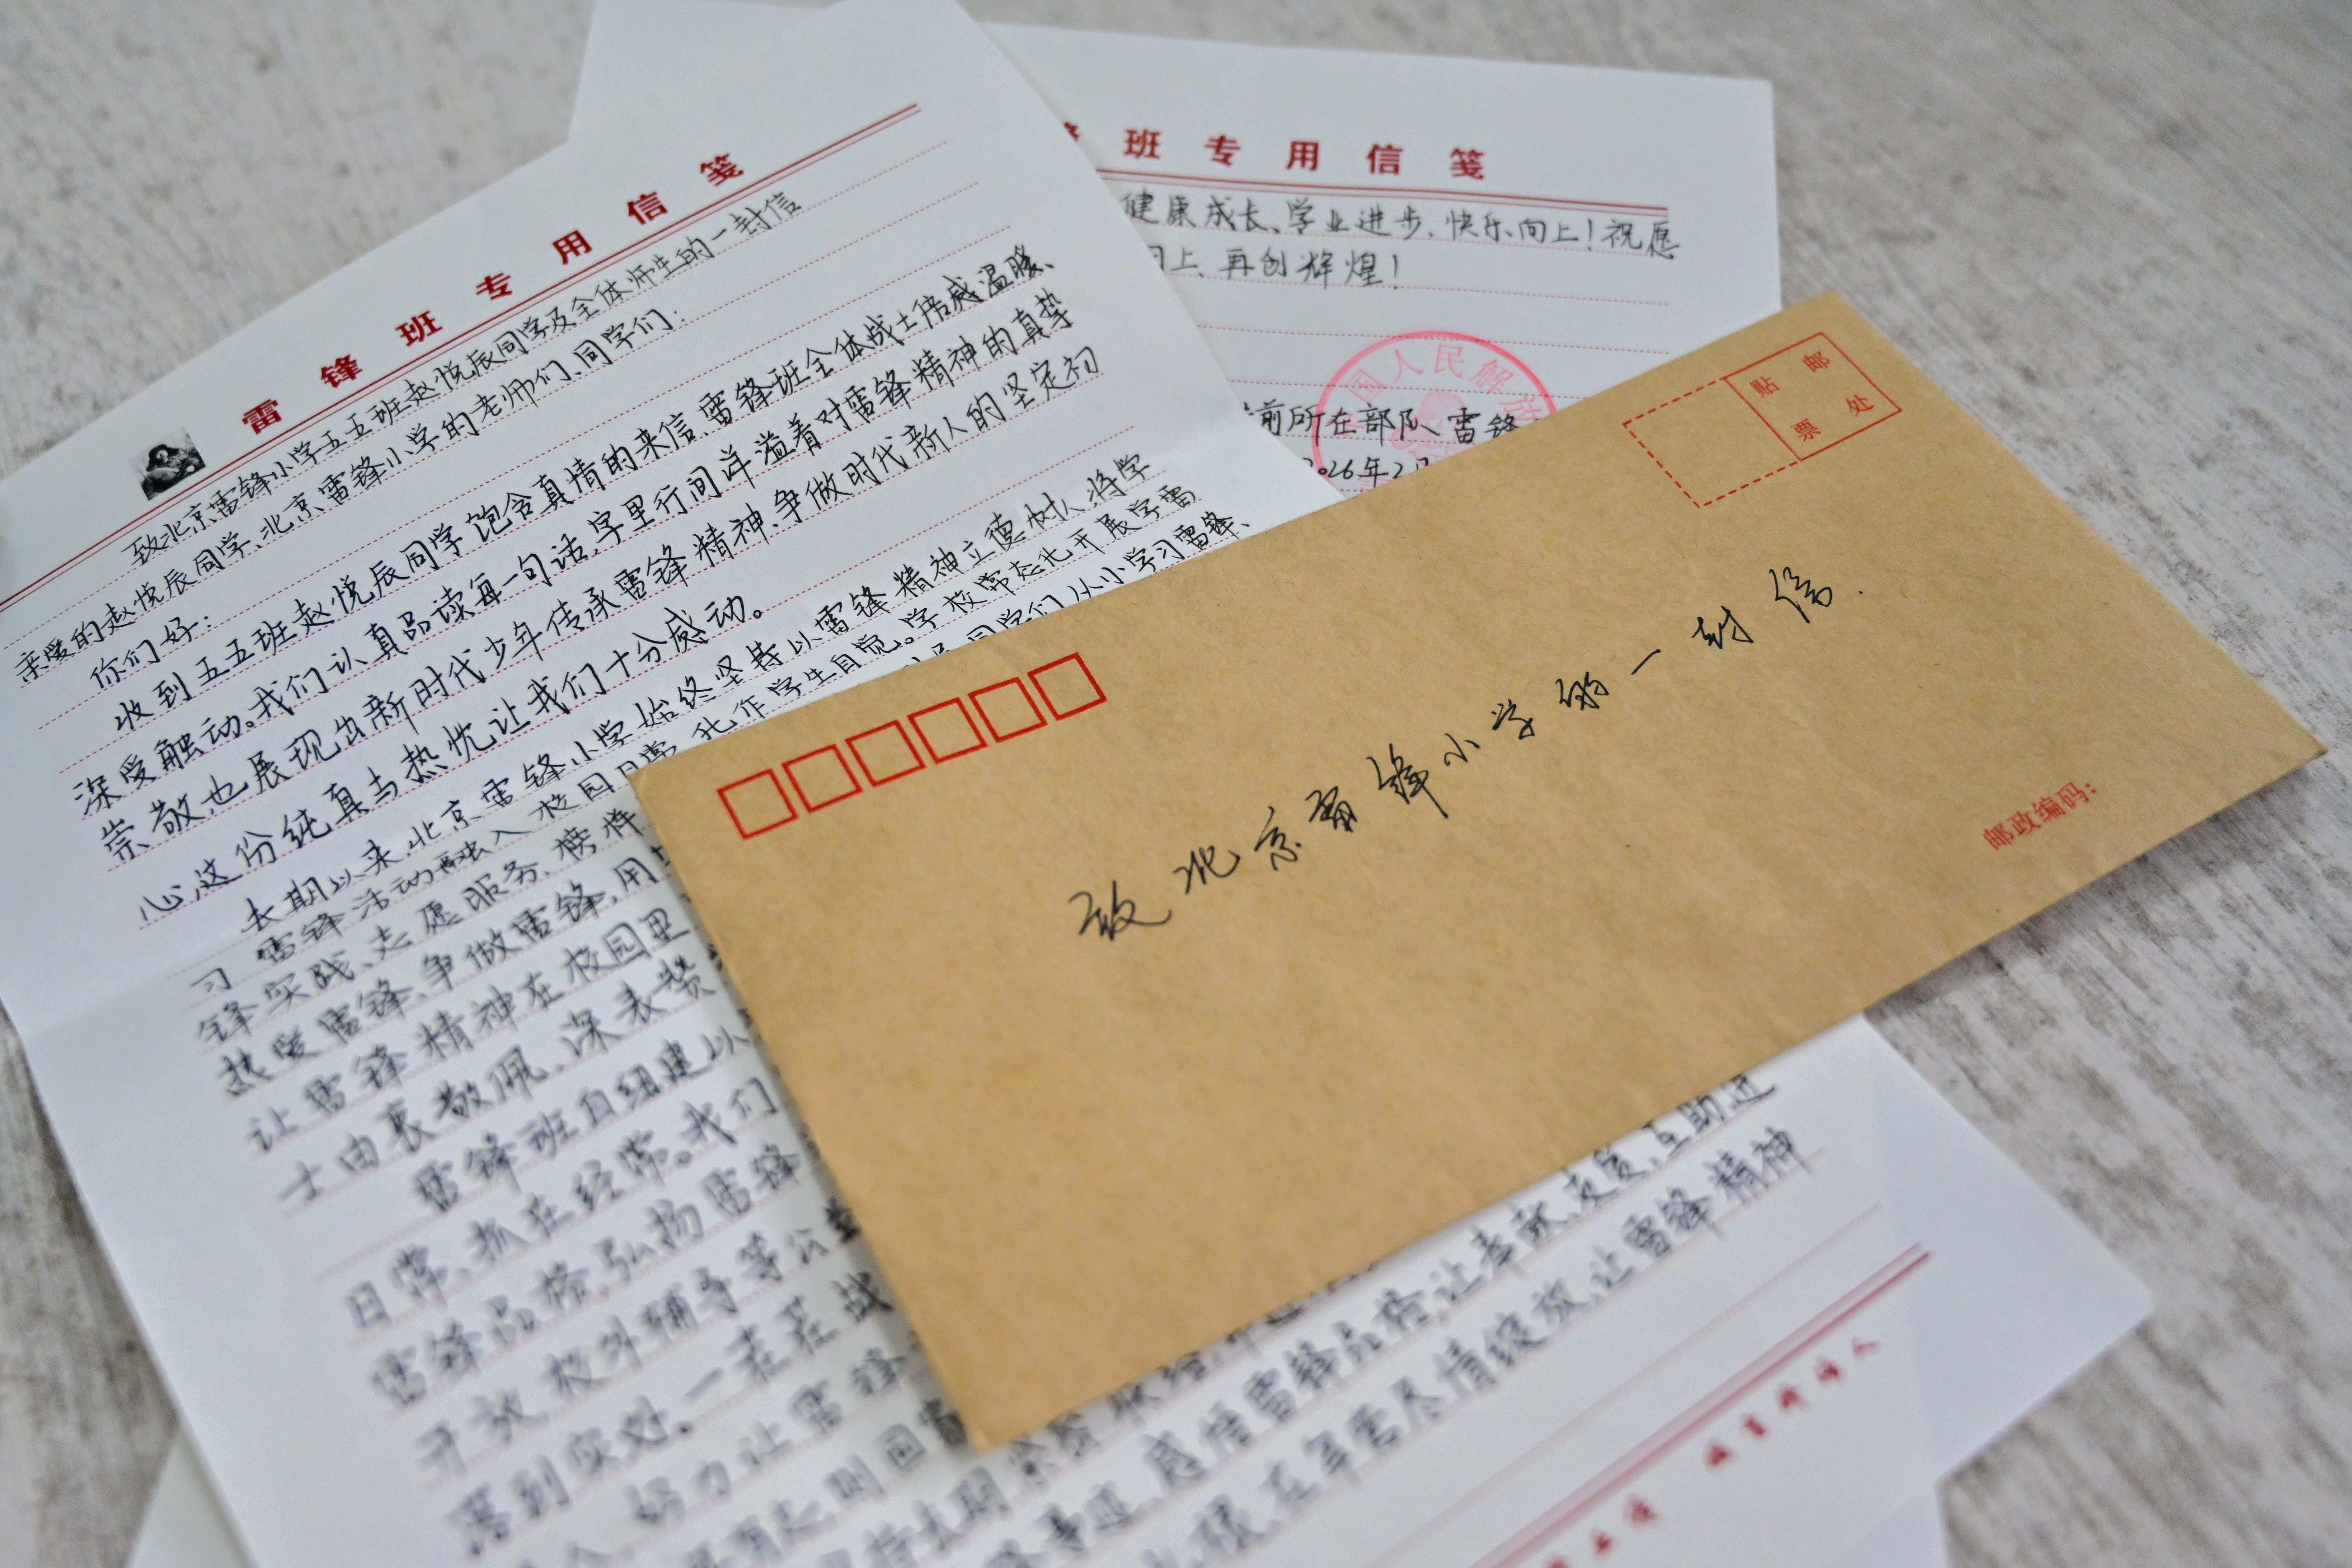 雷锋班专用信笺
致北京雷锋小学五五班赵悦辰同学及全体师生的一封信
亲爱的赵悦辰同学、北京雷锋小学的老师们、同学们:
你们好:
收到五五班赵悦辰同学饱含真情的来信,雷锋班全体战士倍感温暖、
深受触动。我们认真品读每一句话,字里行间洋溢着对雷锋精神的真挚
崇敬,也展现出新时代少年传承雷锋精神、争做时代新人的坚定初
心,这份纯真与热忱让我们十分感动。
长期以来,北京雷锋小学始终坚持以雷锋精神立德树人,将学
习雷锋活动融入校园日常,化作学生自觉。学校常态化开展学雷
锋实践、志愿服务、榜样 同学们从小学习雷锋、
热爱雷锋、争做雷锋,用
让雷锋精神在校园里
士由衷敬佩、深表赞
雷锋班自组建以
日常、抓在经常。我们
雷锋品格,弘扬雷锋
开放、校外辅导等公益
落到实处。一茬茬战
人,努力让雷锋
班专用信笺
健康成长、学业进步、快乐向上!祝愿
向上、再创辉煌!
国人民解放
前所在部队、雷锋
2026年2月
贴邮
票处
致北京雷锋小学的一封信.
邮政编码:
互助进
感悟雷锋品格,让奉献、友爱、
在军营尽情绽放,让雷锋精神